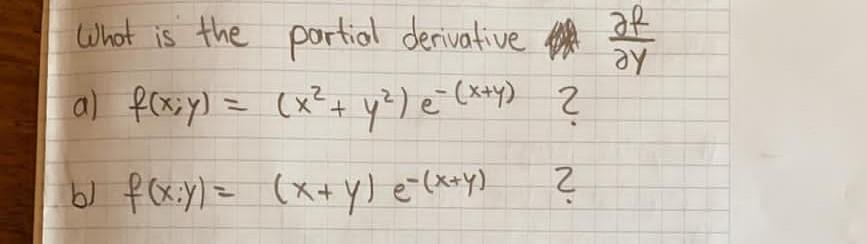 What is the partial derivative ∂f/∂y
a) f(x;y) = (x² + y²) e^-(x+y) ?
b) f(x;y) = (x + y) e^-(x+y) ?